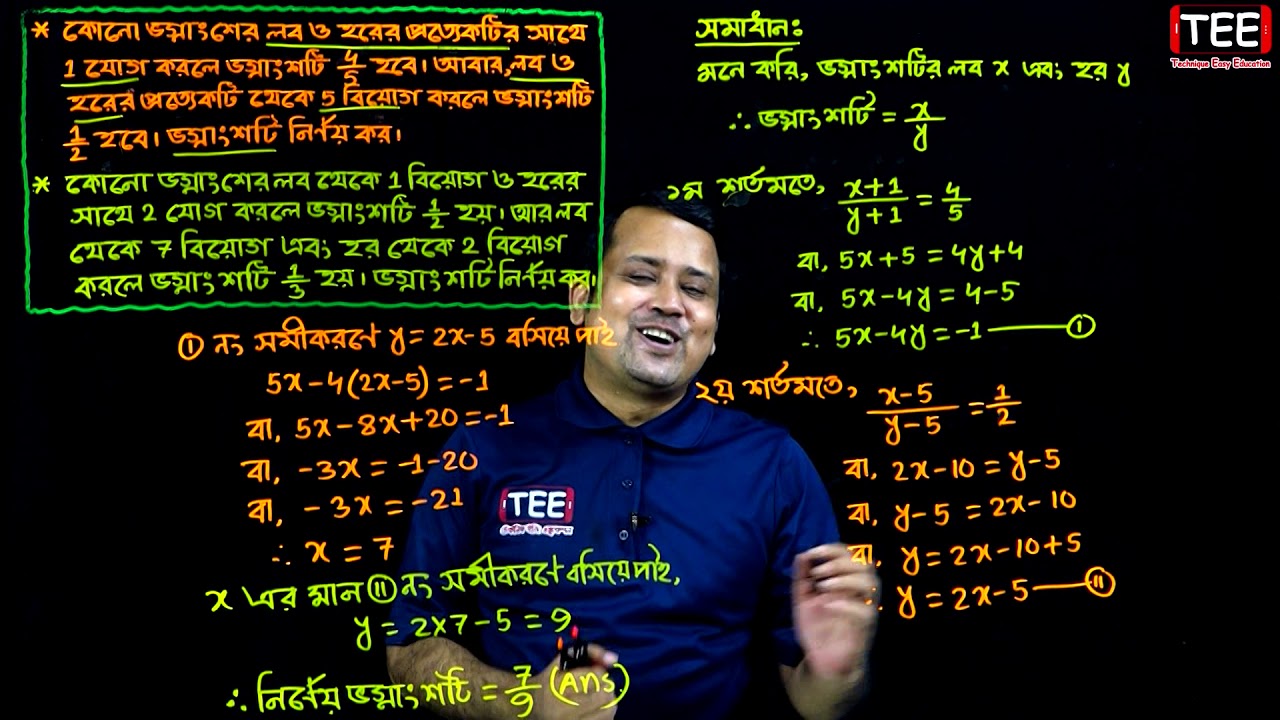 * কোনো ভগ্নাংশের লব ও হরের প্রত্যেকটির সাথে
1 যোগ করলে ভগ্নাংশটি 4/5 হবে। আবার, লব ও
হরের প্রত্যেকটি থেকে 5 বিয়োগ করলে ভগ্নাংশটি
1/2 হবে। ভগ্নাংশটি নির্ণয় কর।
* কোনো ভগ্নাংশের লব থেকে 1 বিয়োগ ও হরের
সাথে 2 যোগ করলে ভগ্নাংশটি 1/2 হয়। আর লব
থেকে 7 বিয়োগ এবং হর থেকে 2 বিয়োগ
করলে ভগ্নাংশটি 1/3 হয়। ভগ্নাংশটি নির্ণয় কর।
সমাধান:
মনে করি, ভগ্নাংশটির লব x এবং হর y
∴ ভগ্নাংশটি = x/y
১ম শর্তমতে, (x+1)/(y+1) = 4/5
বা, 5x+5 = 4y+4
বা, 5x-4y = 4-5
∴ 5x-4y = -1 —— ①
২য় শর্তমতে, (x-5)/(y-5) = 1/2
বা, 2x-10 = y-5
বা, y-5 = 2x-10
বা, y = 2x-10+5
∴ y = 2x-5 —— ⑪
① নং সমীকরণে y = 2x-5 বসিয়ে পাই
5x-4(2x-5) = -1
বা, 5x-8x+20 = -1
বা, -3x = -1-20
বা, -3x = -21
∴ x = 7
x এর মান ⑪ নং সমীকরণে বসিয়ে পাই,
y = 2x7-5 = 9
∴ নির্ণেয় ভগ্নাংশটি = 7/9 (Ans)
TEE
Technique Easy Education
TEE